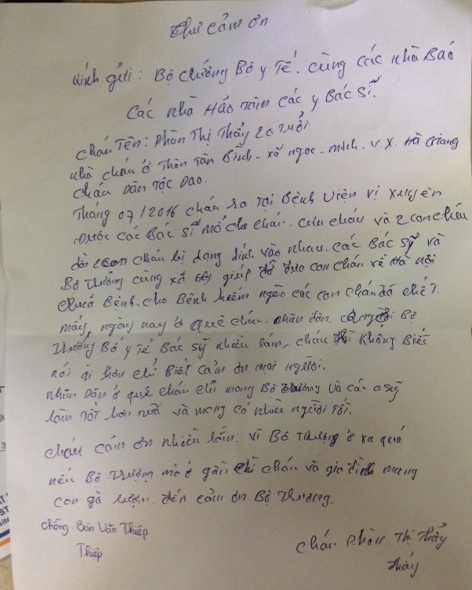 Thư cảm ơn
Kính gửi: Bộ chưởng Bộ y Tế. cùng các nhà Báo
Các nhà Hảo tâm các y Bác Sĩ.
Cháu Tên: Phàn Thị Thẩy 20 Tuổi
nhà cháu ở Thôn Tân Bình - xã ngọc - minh. VX. Hà Giang
cháu Dân Tộc Dao.
Tháng 07/2016 cháu ra Tại Bệnh Viện vị xuyên
Được các Bác sĩ mổ cho cháu. cứu cháu và 2 con cháu
con cháu bị dạng dính vào nhau. các Bác sỹ và
Bộ Trưởng cùng xã hội giúp đỡ đưa con cháu về Hà Nội
chưa Bệnh. cho Bệnh hiểm ngèo các con cháu đó chết.
mấy ngày nay ở quê cháu. nhân dân Bộ
Trưởng Bộ y Tế Bác sỹ nhiều lắm, cháu Không Biết
nói gì hơn chỉ Biết cảm ơn mọi người.
nhân Dân ở quê cháu chỉ mong Bộ Trưởng và sỹ
làm Tốt hơn nữa và mong có nhiều người Tốt.
cháu cảm ơn nhiều lắm. vì Bộ Trưởng ở xa quá
nếu Bộ Trưởng mà ở gần thì cháu và gia đình mang
con gà đến cảm ơn Bộ Trưởng.
chồng Bàn Văn Thiệp
Thiệp
cháu Phàn Thị Thẩy
Thẩy